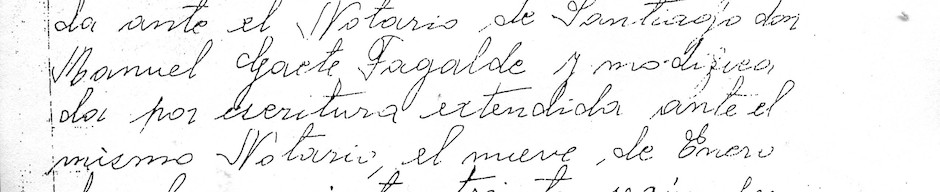 da ante el Notario de Santiago don
Manuel Gaete Fagalde y modifica
da por escritura extendida ante el
mismo Notario, el nueve de Enero